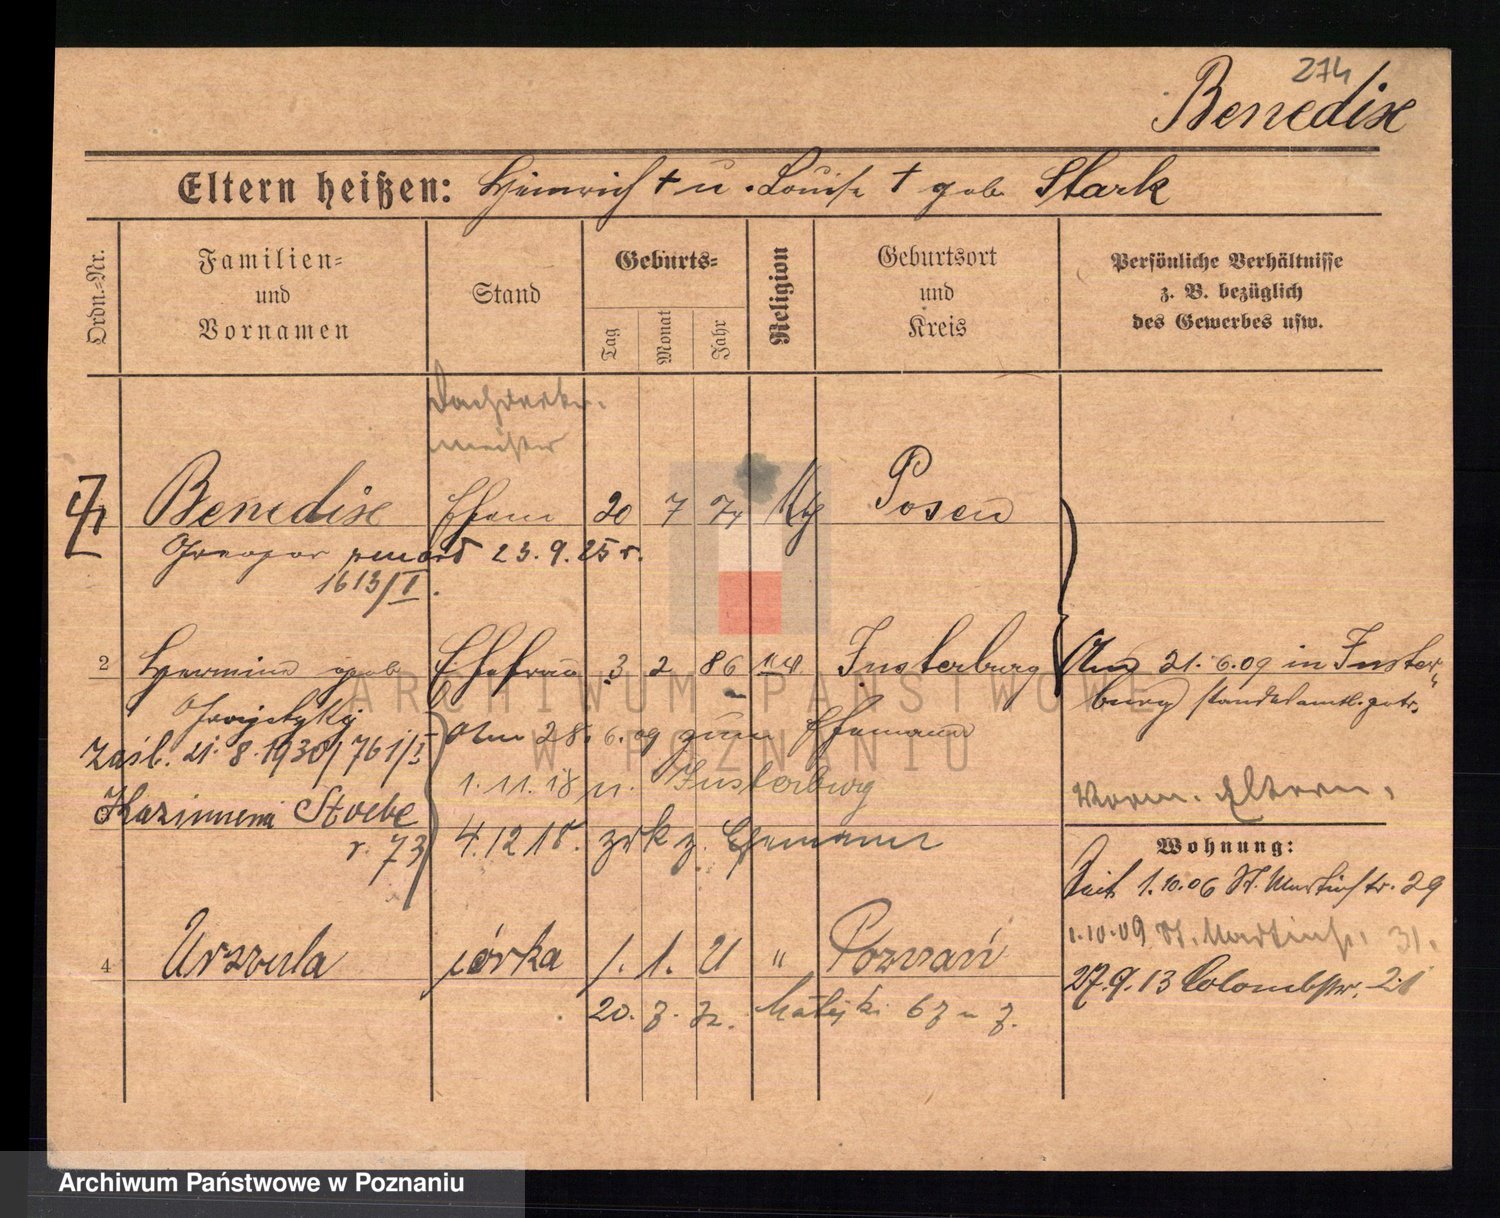 274
Benedix
Eltern heißen: Heinrich † u. Louise † geb. Stark
Ordn.-Nr.
Familien-
und
Vornamen
Stand
Geburts-
Tag
Monat
Jahr
Religion
Geburtsort
und
Kreis
Persönliche Verhältnisse
z. B. bezüglich
des Gewerbes usw.
Dachdecker-
meister
Benedix Ehem 20 7 74 Posen
Gregor zmarł 23.9.25 r.
1613/I.
2 Hermine geb. Ehefrau 3 2 86 Insterburg
Am 21.6.09 in Inster-
burg standesamtl. getr.
zaśl. 21.8.1930/761/I
Am 28.6.09 zum Ehemann
1.11.18 n. Insterburg
Kazimierz Stoebe
r. 73
4.12.18. zrk z. Ehemann
Vorm. Eltern.
Wohnung:
Seit 1.10.06 St. Martinstr. 29
1.10.09 St. Martinstr. 31.
27.9.13 Colombstr. 21
4 Urszula córka 1. 1. 21 " Poznań
20. 3. 32. Matejki 63
ARCHIWUM PAŃSTWOWE
W POZNANIU
Archiwum Państwowe w Poznaniu